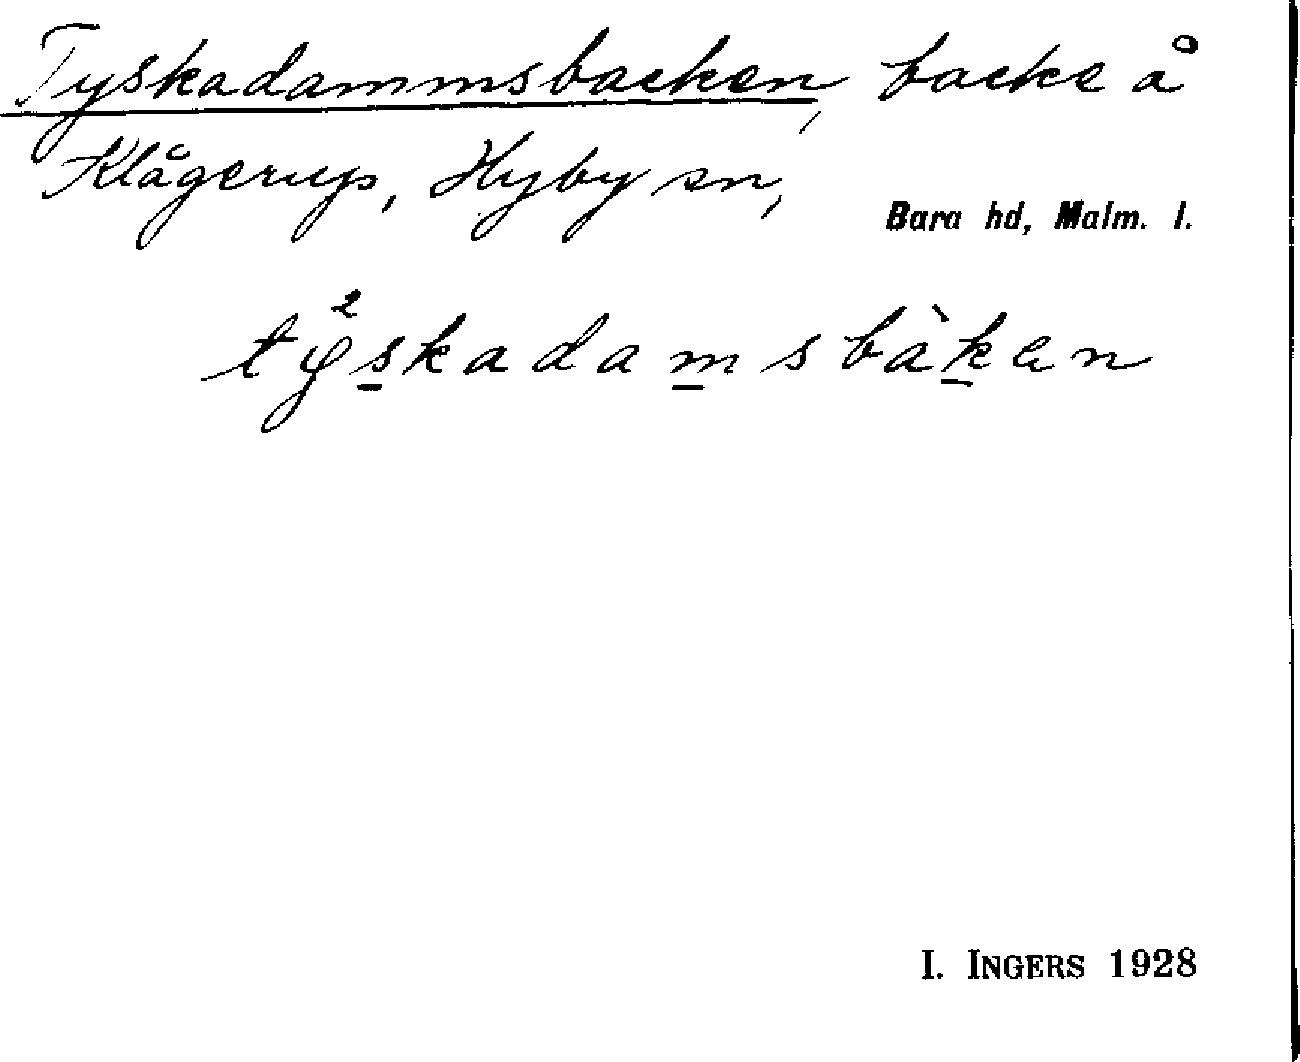 Tyskadammsbacken, backe å
Klågerup, Hyby sn,
Bara hd, Malm. l.
ty²skadamsbàken
I. INGERS 1928